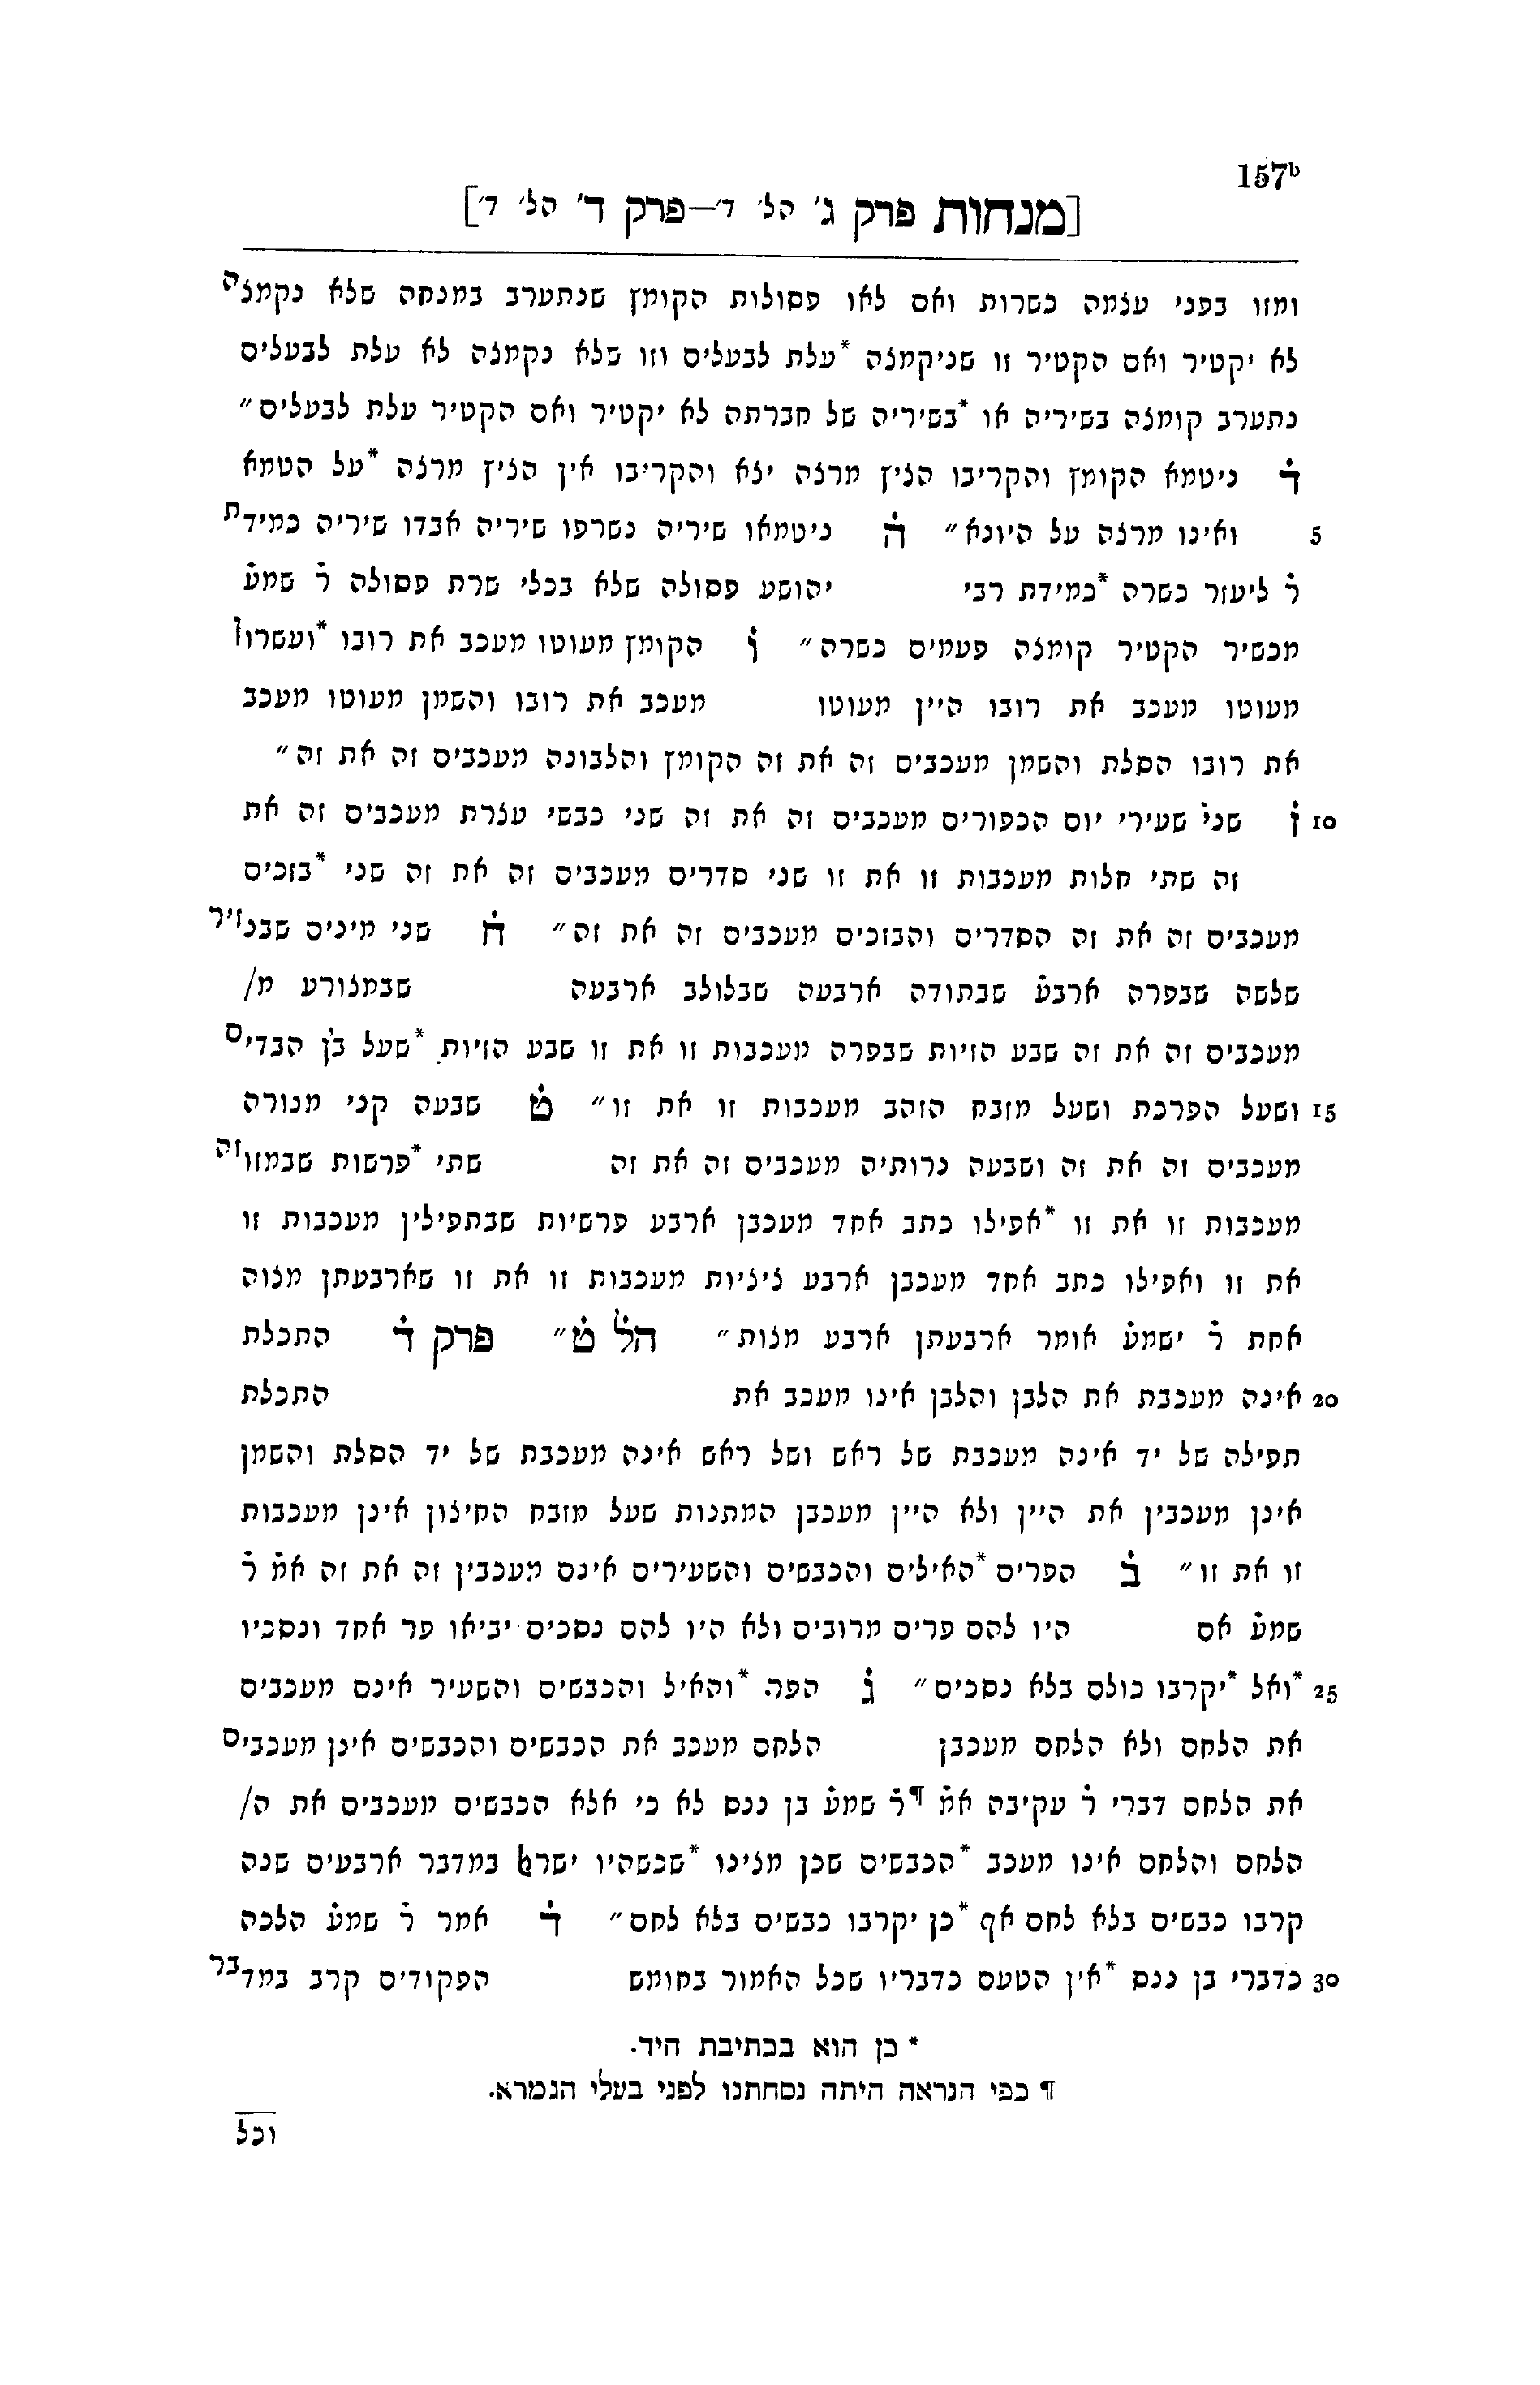 157ᵇ
[מנחות פרק ג׳ הל׳ ד׳—פרק ד׳ הל׳ ד׳]
ומזו בפני עצמה כשרות ואם לאו פסולות הקומץ שנתערב במנחה שלא נקמצה
לא יקטיר ואם הקטיר זו שניקמצה *עלת לבעלים וזו שלא נקמצה לא עלת לבעלים
נתערב קומצה בשיריה או *בשיריה של חברתה לא יקטיר ואם הקטיר עלת לבעלים״
ד̇ ניטמא הקומץ והקריבו הציץ מרצה יצא והקריבו אין הציץ מרצה *על הטמא
5 ואינו מרצה על היוצא״ ה̇ ניטמאו שיריה נשרפו שיריה אבדו שיריה כמידת
ר̇ ליעזר כשרה *כמידת רבי יהושע פסולה שלא בכלי שרת פסולה ר̇ שמע̇
מכשיר הקטיר קומצה פעמים כשרה״ ו̇ הקומץ מעוטו מעכב את רובו *ועשרון
מעוטו מעכב את רובו היין מעוטו מעכב את רובו והשמן מעוטו מעכב
את רובו הסלת והשמן מעכבים זה את זה הקומץ והלבונה מעכבים זה את זה״
10 ז̇ שני שעירי יום הכפורים מעכבים זה את זה שני כבשי עצרת מעכבים זה את
זה שתי חלות מעכבות זו את זו שני סדרים מעכבים זה את זה שני *בזכים
מעכבים זה את זה הסדרים והבזכים מעכבים זה את זה״ ח̇ שני מינים שבנזיר
שלשה שבפרה ארבע̇ שבתודה ארבעה שבלולב ארבעה שבמצורע מ/
מעכבים זה את זה שבע הזיות שבפרה מעכבות זו את זו שבע הזיות *שעל בין הבדים
15 ושעל הפרכת ושעל מזבח הזהב מעכבות זו את זו״ ט̇ שבעה קני מנורה
מעכבים זה את זה ושבעה נרותיה מעכבים זה את זה שתי *פרשות שבמזוזה
מעכבות זו את זו *אפילו כתב אחד מעכבן ארבע פרשיות שבתפילין מעכבות זו
את זו ואפילו כתב אחד מעכבן ארבע ציציות מעכבות זו את זו שארבעתן מצוה
אחת ר̇ ישמע̇ אומר ארבעתן ארבע מצות״ הל̇ ט̇״ פרק ד̇ התכלת
20 אינה מעכבת את הלבן והלבן אינו מעכב את התכלת
תפילה של יד אינה מעכבת של ראש ושל ראש אינה מעכבת של יד הסלת והשמן
אינן מעכבין את היין ולא היין מעכבן המתנות שעל מזבח החיצון אינן מעכבות
זו את זו״ ב̇ הפרים *האילים והכבשים והשעירים אינם מעכבין זה את זה אמ̇ ר̇
שמע̇ אם היו להם פרים מרובים ולא היו להם נסכים יביאו פר אחד ונסכיו
25 *ואל *יקרבו כולם בלא נסכים״ ג̇ הפר. *והאיל והכבשים והשעיר אינם מעכבים
את הלחם ולא הלחם מעכבן הלחם מעכב את הכבשים והכבשים אינן מעכבים
את הלחם דברי ר̇ עקיבה אמ̇ ¶ר̇ שמע̇ בן ננס לא כי אלא הכבשים מעכבים את ה/
הלחם והלחם אינו מעכב *הכבשים שכן מצינו *שכשהיו ישראל במדבר ארבעים שנה
קרבו כבשים בלא לחם אף *כן יקרבו כבשים בלא לחם״ ד̇ אמר ר̇ שמע̇ הלכה
30 כדברי בן ננס *אין הטעם כדבריו שכל האמור בחומש הפקודים קרב במדבר
* כן הוא בכתיבת היד.
¶ כפי הנראה היתה נסחתנו לפני בעלי הגמרא.
וכל